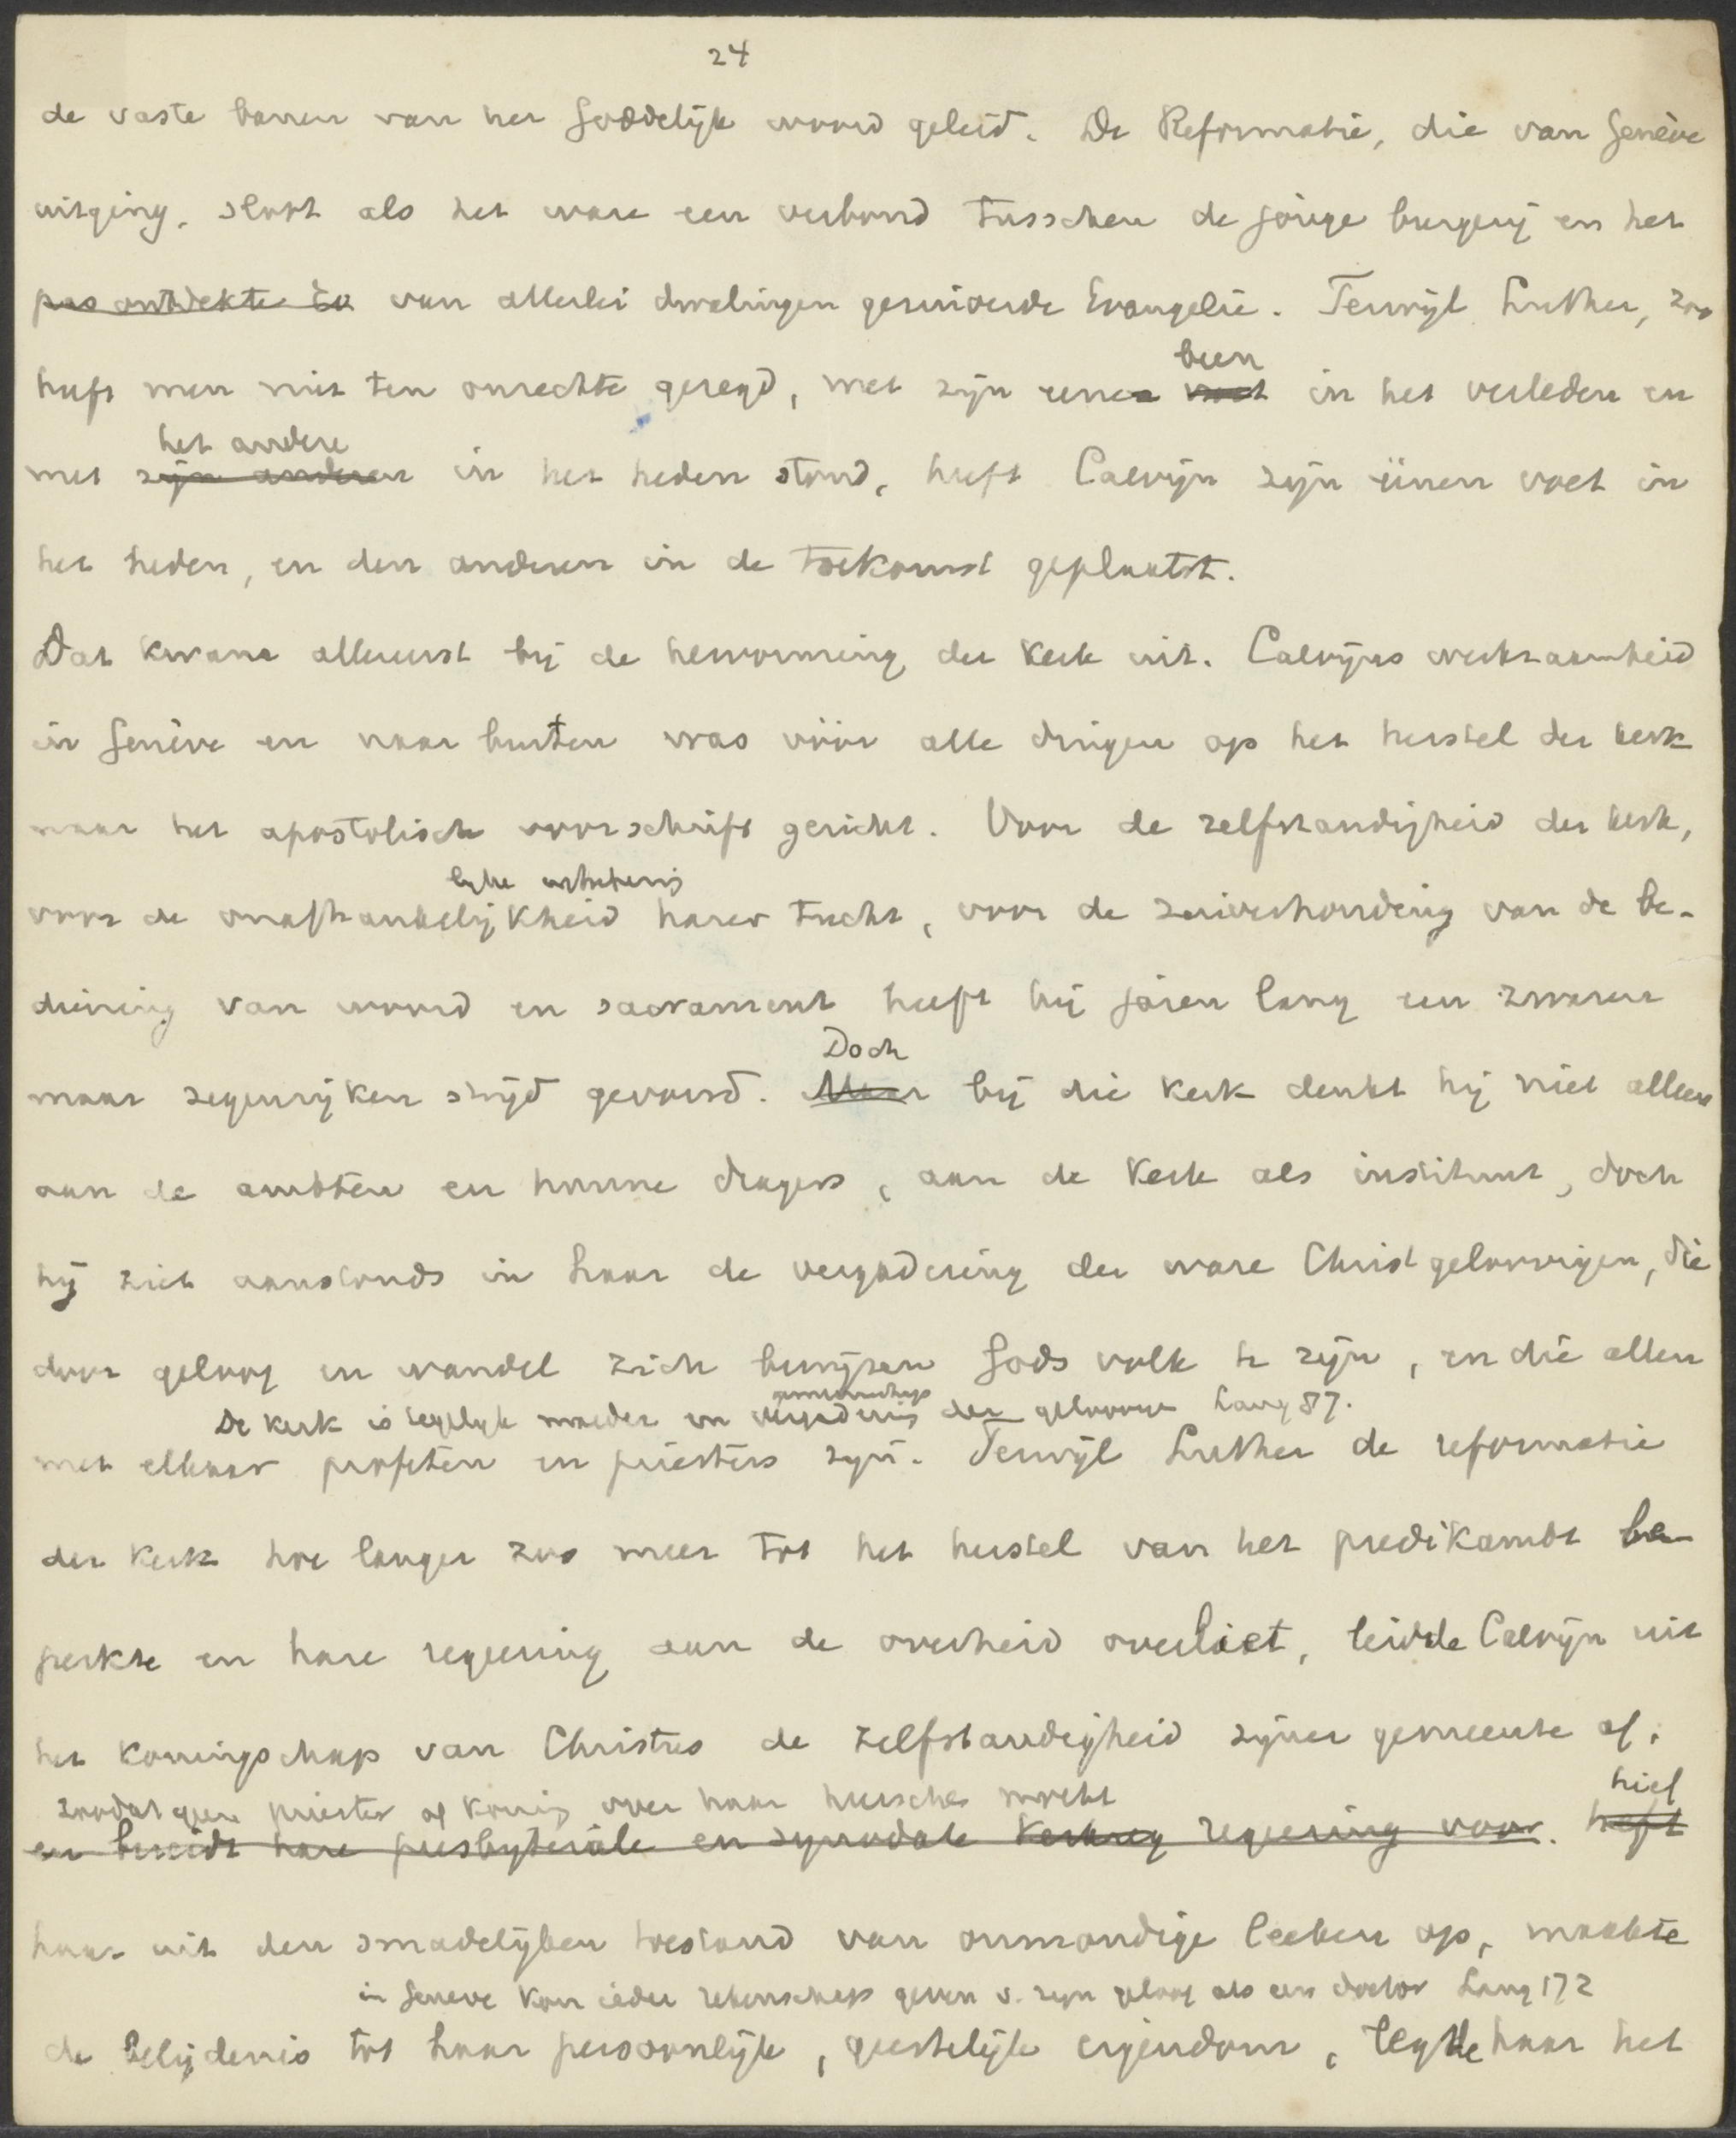 24
de vaste banen van het Goddelijk woord geleid. De Reformatie, die van Genève
uitging, sloot als het ware een verbond tusschen de jonge burgerij en het
pas ontdekte en van allerlei dwalingen gezuiverde Evangelie. Terwijl Luther, zoo
heeft men niet ten onrechte gezegd, met zijn eenen voet in het verleden en
been
met zijn anderen in het heden stond, heeft Calvijn zijn éénen voet in
het andere
het heden, en den anderen in de toekomst geplaatst.
Dat kwam allereerst bij de hervorming der kerk uit. Calvijns werkzaamheid
in Genève en naar buiten was vóór alle dingen op het herstel der kerk
naar het apostolisch voorschrift gericht. Voor de zelfstandigheid der kerk,
lijke
voor de onafhankelijkheid harer tucht, voor de zuiverhouding van de be-
diening van woord en sacrament heeft hij jaren lang een zwaren
Doch
maar zegenrijken strijd gevoerd. Maar bij die kerk denkt hij niet alleen
aan de ambten en hunne dragers, aan de kerk als instituut, doch
hij ziet aanstonds in haar de vergadering der ware Christgeloovigen, die
door geloof en wandel zich bewijzen Gods volk te zijn, en die allen
gemeenschap
De kerk is tegelijk moeder en vergadering der geloovigen Lang 87.
met elkaar profeten en priesters zijn. Terwijl Luther de reformatie
der kerk hoe langer zoo meer tot het herstel van het predikambt be-
perkte en hare regeering aan de overheid overliet, leidde Calvijn uit
het koningschap van Christus de zelfstandigheid zijner gemeente af,
zoodat geen priester of koning over haar heerschen mocht
hief
en bereidt hare presbyteriale en synodale kerkreg regeering voor. heft
haar uit den smadelijken toestand van onmondige leeken op, maakte
in Geneve kon ieder rekenschap geven v. zijn geloof als een doctor Lang 172
de belijdenis tot haar persoonlijk, geestelijk eigendom, legde haar het